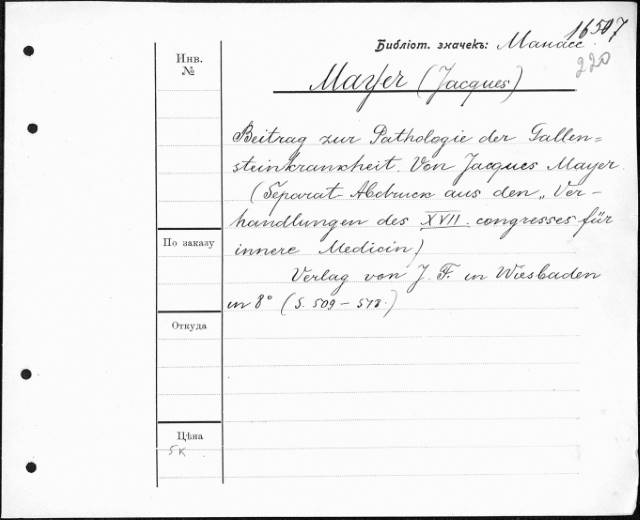 16507
Библіот. значекъ: Манасс.
220
Инв.
№
Mayer (Jacques)
Beitrag zur Pathologie der Gallen=
steinkrankheit. Von Jacques Mayer.
(Separat-Abdruck aus den „Ver-
handlungen des XVII. congresses für
По заказу
innere Medicin)
Verlag von J. F. in Wiesbaden
in 8° (S. 509 – 518.)
Откуда
Цѣна
5к